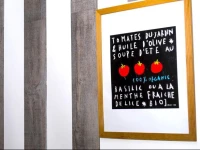 TOMATES DU JARDIN
& HUILE D'OLIVE *
SOUPE D'ÉTÉ AU
100% ORGANIC
BASILIC OU A LA
MENTHE FRAICHE
DE LICE * BIO